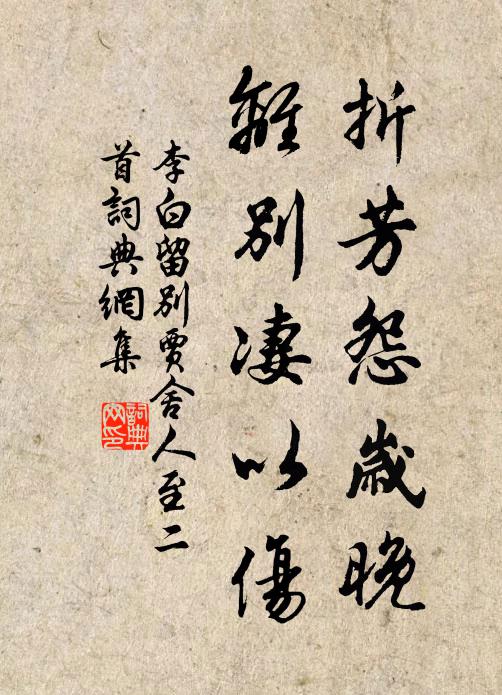 折芳怨歲晚
離別淒以傷
李白留別賈舍人至二
首詞典網集
詞典
网印